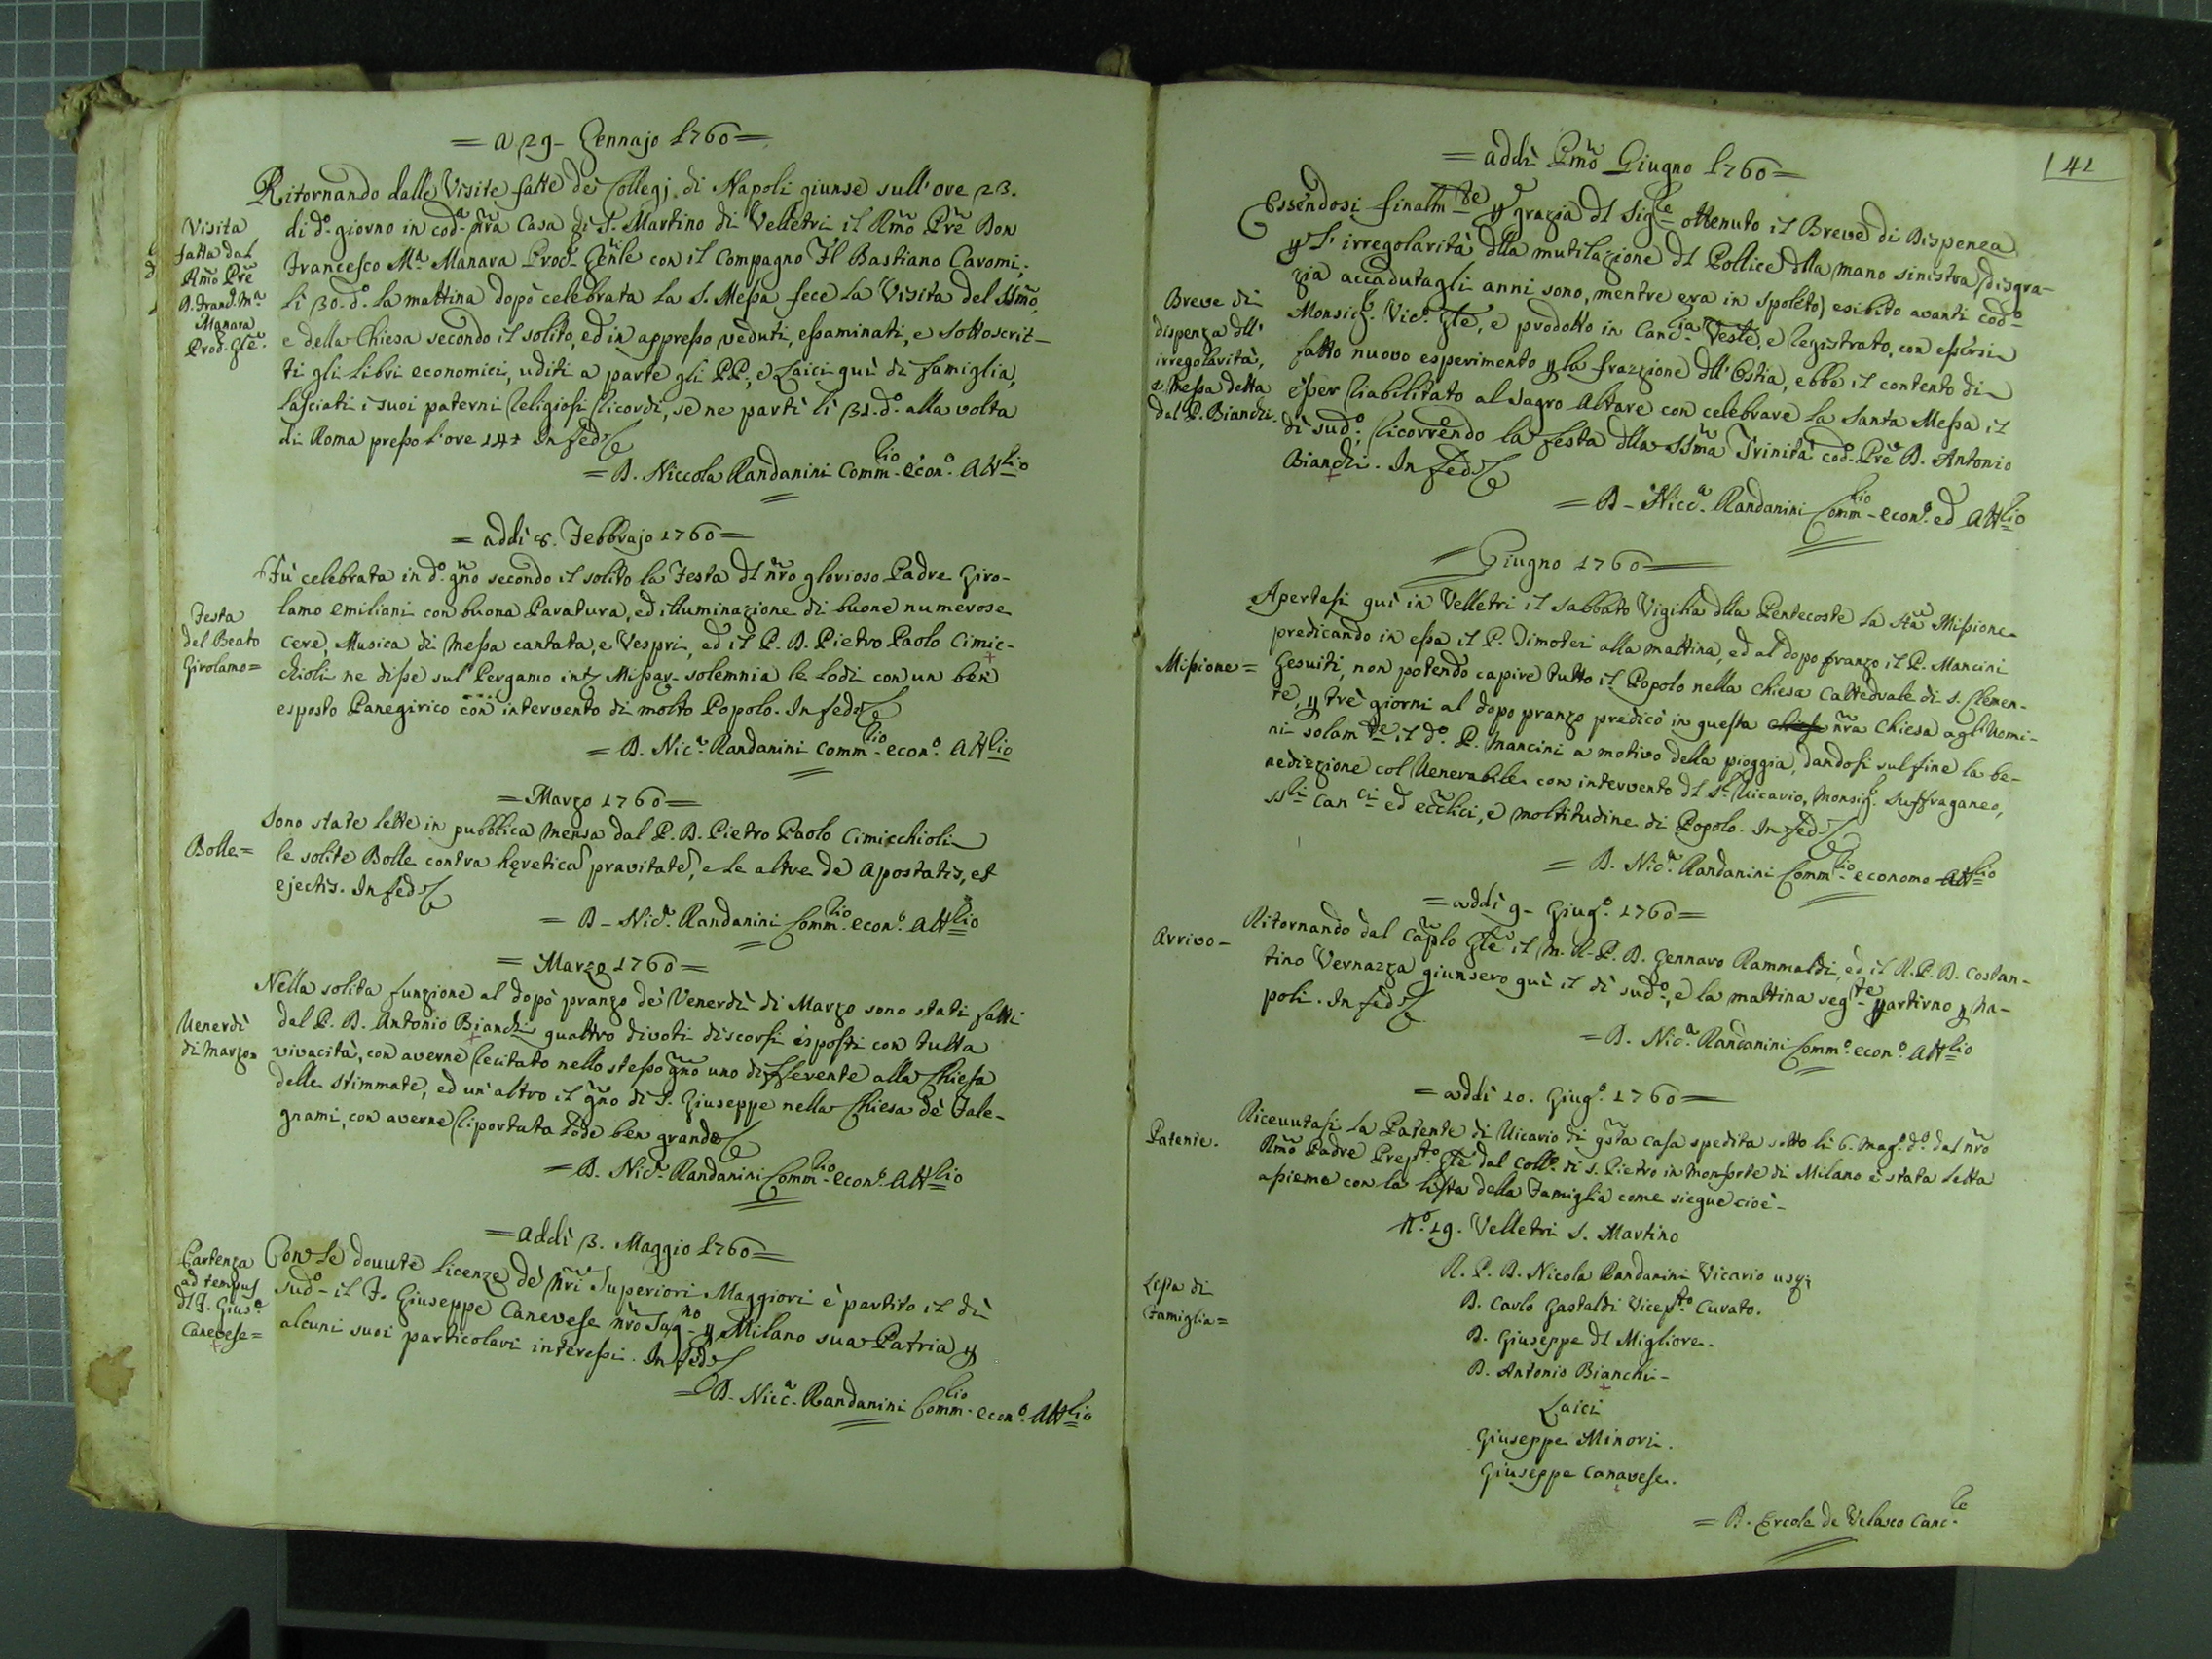 = a 29- Gennajo 1760=
Ritornando dalle Visite fatte de Collegj di Napoli giunse sull'ore 23.
Visita fatta dal Rmo Pre D. Franc. Ma Manara Prod. Gle.
di do. giorno in coda. nra Casa di S. Martino di Velletri il Rmo Pre Don
Francesco Ma. Manara Prod. Genle con il Compagno Fl Bastiano Caromi;
li 30. do. la mattina dopò celebrata la S. Messa fece la Visita del SSmo,
e della Chiesa secondo il solito, ed in appresso veduti, essaminati, e sottoscrit-
ti gli libri economici, uditi a parte gli PP., e Laici qui di famiglia,
lasciati i suoi paterni Religiosi Ricordi, se ne partì lì 31. do. alla volta
di Roma presso l'ore 14 In fede
= D. Niccola Randanini Commlio. econo. Attlio
= addì 8. Febbrajo 1760=
Fù celebrata in do. gno secondo il solito la Festa dl nro glorioso Padre Giro-
Festa del Beato Girolamo=
lamo Emiliani con buona Paratura, ed illuminazione di buone numerose
cere, Musica di Messa cantata, e Vespri, ed il P. D. Pietro Paolo Cimic-
chioli ne disse sul Pergamo int Missar. solemnia le lodi con un ben
esposto Panegirico con intervento di molto Popolo. In fede
= D. Nica. Randanini Commlio. econo. Attlio
= Marzo 1760=
Bolle=
Sono state lette in pubblica Mensa dal P. D. Pietro Paolo Cimicchioli
le solite Bolle contra hęretica pravitate, e le altre de Apostatis, et
ejectis. In fede
= D- Nica. Randanini Commlio. econo. Attlio
= Marzo 1760=
Nella solita funzione al dopò pranzo dè Venerdì di Marzo sono stati fatti
Venerdì di Marzo=
dal P. D. Antonio Bianchi quattro divoti discorsi esposti con tutta
vivacità, con averne recitato nello stesso gno uno differente alla Chiesa
delle Stimmate, ed un'altro il gno di S. Giuseppe nella Chiesa dè Fale-
gnami, con averne riportata lode ben grande
= D. Nica. Randanini Commlio. econo. Attlio
= Addì 3. Maggio 1760=
Partenza ad tempus dl F. Giuse. Canevese=
Con le dovute licenze dè nri Superiori Maggiori è partito il dì
sudo- il F. Giuseppe Canevese nro Lagno- p Milano sua Patria p
alcuni suoi particolari interessi. In fede
= D- Nica. Randanini Commlio. econo. Attlio
141
= addì Pmo Giugno 1760=
Essendosi finalmte p grazia dl Sigre ottenuto il Breve di Dispenza
p l'irregolarità dlla mutilazione dl Pollice dlla mano sinistra (disgra-
Breve di dispenza dll' irregolarità, e Messa detta dal P. Bianchi
zia accadutagli anni sono, mentre era in Spoleto) esibito avanti codo-
Monsigr. Vico. Gle, e prodotto in Cancia. Veste, e Registrato, con essersi
fatto nuovo esperimento p la frazzione dll'Ostia, ebbe il contento di
esser riabilitato al Sagro Altare con celebrare la Santa Messa il
dì sudo. ricorrendo la festa dlla SSma Trinità codo. Pre D. Antonio
Bianchi. In fede
= D- Nicca. Randanini Commlio- econo. ed Attlio
= Giugno 1760 =
Apertasi quì in Velletri il Sabbato Vigilia dlla Pentecoste la Sta Missione
predicando in essa il P. Dimoteri alla mattina, ed al dopo pranzo il P. Mancini
Missione=
Gesuiti, non potendo capire tutto il Popolo nella Chiesa Cattedrale di S. Clemen-
te, p trè giorni al dopo pranzo predicò in questa chiesa nra Chiesa agl'Uomi-
ni solamte il do. P. Mancini a motivo della pioggia, dandosi sul fine la be-
nedizzione col Venerabile con intervento dl Sr. Vicario, Monsigr. Suffraganeo,
SSri Canci ed ecclici, e moltitudine di Popolo. In fede
= D. Nica. Randanini Commlio- economo Attlio
= addì 9- Giugo. 1760=
Arrivo-
Ritornando dal Caplo Gle il M. R. P. D. Gennaro Rammaldi, ed il R. P. D. Costan-
tino Vernazza giunsero quì il dì sudo., e la mattina segte partirno p Na-
poli. In fede
= D. Nica. Randanini Commo. econo. Attlio
= addì 10. Giugo. 1760=
Patente.
Ricevutasi la Patente di Vicario di qsta casa spedita sotto li 6. Mago. do. dal nro
Rmo Padre Prepto Gle dal Collo. di S. Pietro in Monforte di Milano è stata letta
assieme con la lista della Famiglia come siegue cioè-
No. 19. Velletri S. Martino
Lista di Famiglia=
R. P. D. Nicola Randanini Vicario usq;
D. Carlo Gastaldi Vicepto. Curato.
D. Giuseppe dl Migliore.
D. Antonio Bianchi-
Laici
Giuseppe Minori.
Giuseppe Canavese.
= D. Ercole de Velasco Cancle.